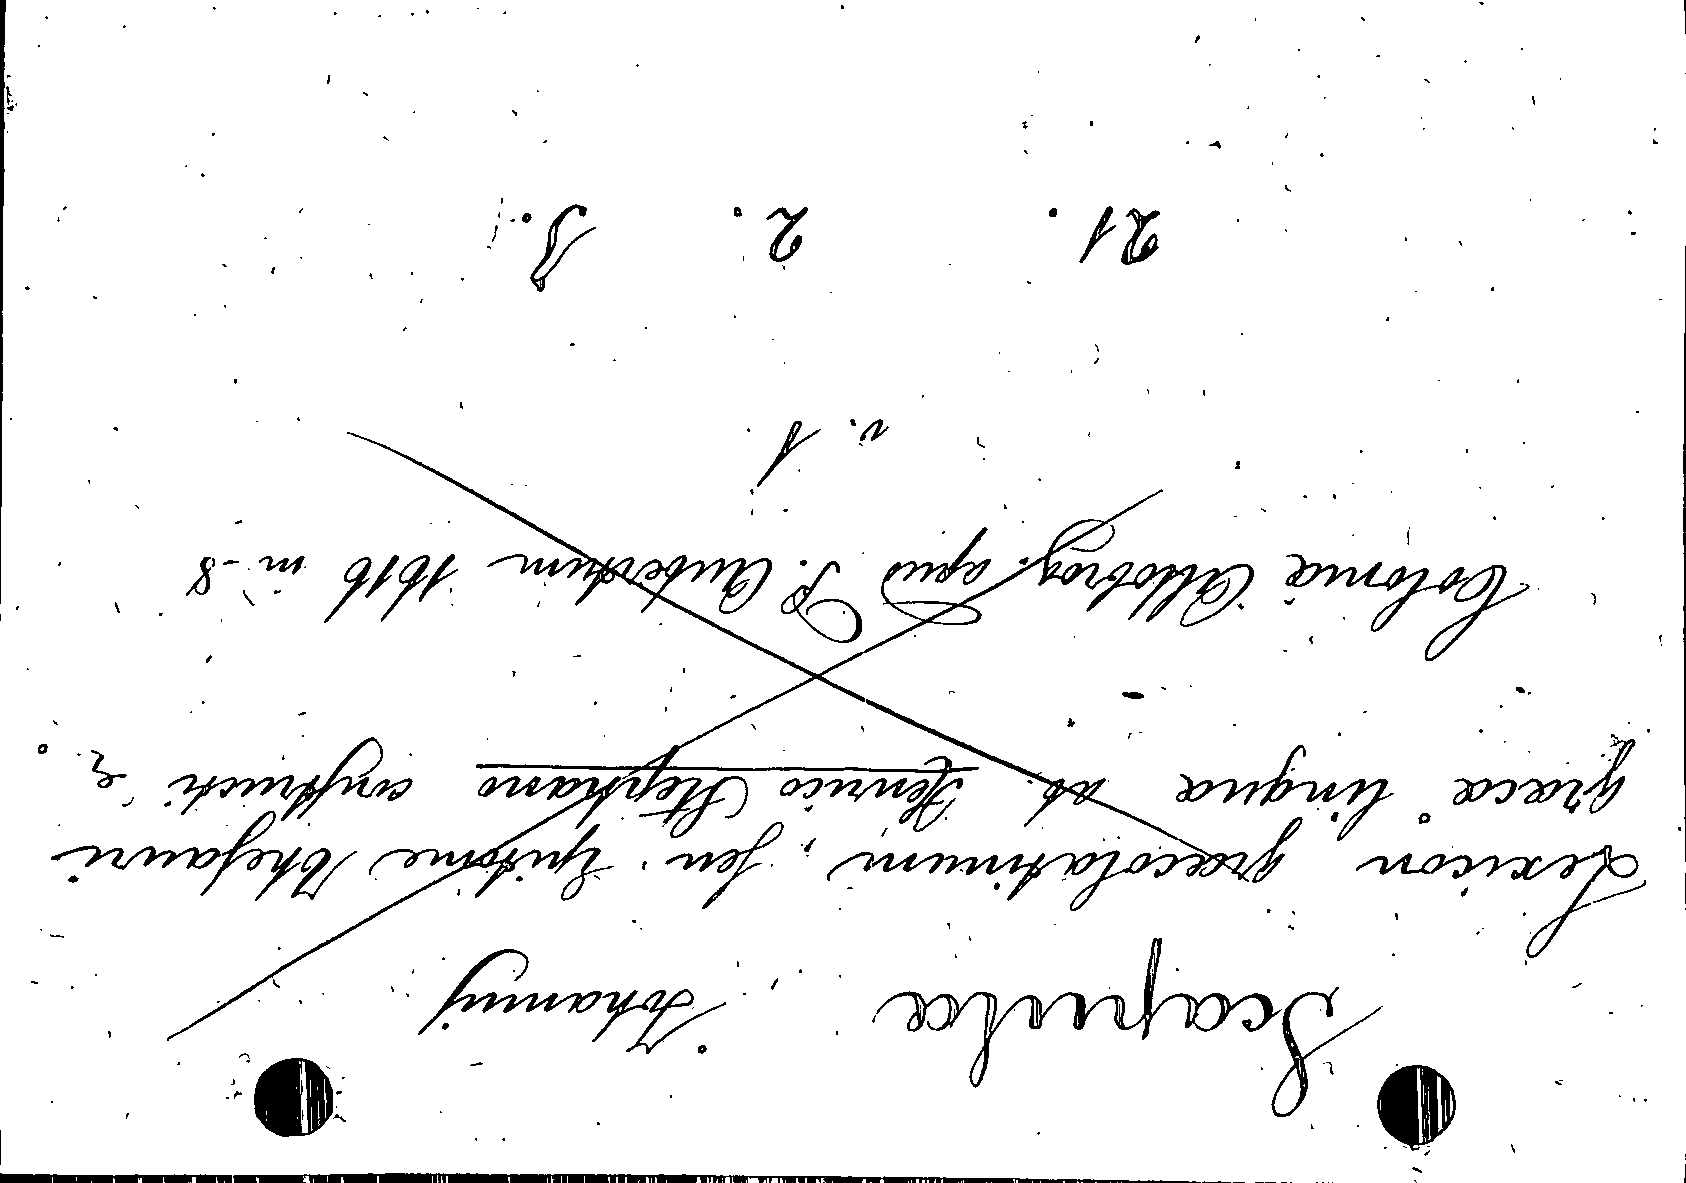 Scapulæ Johannis
Lexicon græcolatinum, seu Epitome Thesauri
græcæ linguæ ab Henrico Stephano constructi &.
Coloniæ Allobrog. apud P. Aubertum 1616 m-8
v. 1
21. 2. J.